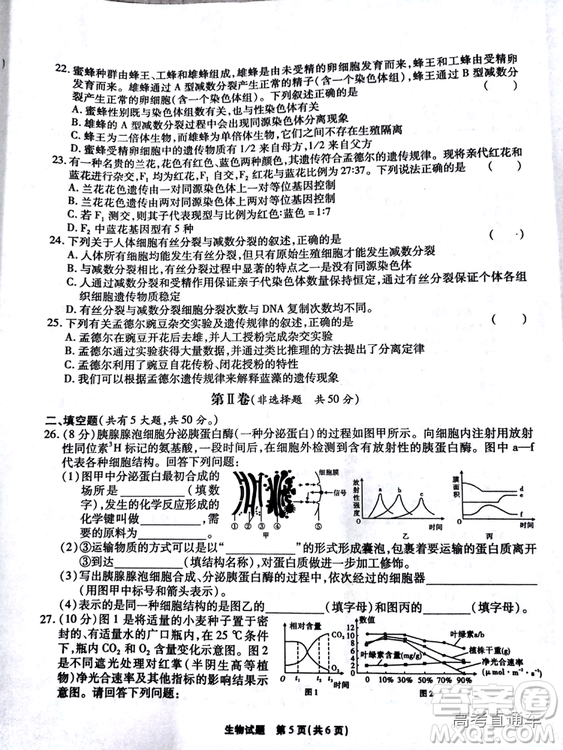 22. 蜜蜂种群由蜂王、工蜂和雄蜂组成,雄蜂是由未受精的卵细胞发育而来,蜂王和工蜂由受精卵
发育而来。雄蜂通过 A 型减数分裂产生正常的精子(含一个染色体组),蜂王通过 B 型减数分
裂产生正常的卵细胞(含一个染色体组)。下列叙述正确的是 ( )
A. 蜜蜂性别既与染色体组数有关,也与异型的性染色体有关
B. 雄蜂的 A 型减数分裂过程中会出现同源染色体分离现象
C. 蜂王为二倍体生物,雄蜂为单倍体生物,它们之间不存在生殖隔离
D. 蜜蜂受精卵细胞中的遗传物质有 1/2 来自母方,有 1/2 来自父方
23. 有一种名贵的兰花,花色有红色、蓝色两种颜色,其遗传符合孟德尔的遗传规律。现将亲代红花和
蓝花进行杂交,F₁ 均为红花,F₁ 自交,F₂ 红花与蓝花的比例为 27:37。下列叙述正确的是 ( )
A. 兰花花色遗传由一对同源染色体上一对等位基因控制
B. 兰花花色遗传由两对同源染色体上两对等位基因控制
C. 若 F₁ 测交,则其子代表现型及比例为红色:蓝色=1:7
D. F₂ 中蓝花基因型有 5 种
24. 下列关于人体细胞有丝分裂与减数分裂的叙述,正确的是 ( )
A. 人体所有细胞或进行有丝分裂或进行减数分裂
B. 与减数分裂过程中最显著的特点之一是没有同源染色体
C. 人通过有丝分裂可保证子代与亲代遗传物质稳定,通过有丝分裂可保证个体各
组织细胞遗传物质稳定
D. 减数分裂与有丝分裂细胞分裂次数与 DNA 复制次数均不同。
25. 下列有关孟德尔豌豆杂交实验及遗传规律的叙述,正确的是 ( )
A. 孟德尔在豌豆开花后去雄,并人工授粉完成杂交实验
B. 孟德尔通过豌豆杂交实验并通过类比推理的方法提出分离定律
C. 孟德尔利用了豌豆自花传粉、闭花授粉的特性
D. 孟德尔的遗传规律可用来解释蓝藻的遗传现象
第Ⅱ卷(非选择题 共50分)
二、填空题(共有5大题,共50分。)
26. (8分)胰腺腺泡细胞分泌胰蛋白酶(一种分泌蛋白)的过程如图甲所示。向细胞内注射用放射
性同位素³H 标记的氨基酸,一段时间后,在细胞外检测到含有放射性的胰蛋白酶。图中 a—f
代表各种细胞结构。回答下列问题:
(1)图甲中分泌蛋白最初合成的
场所是______(填数
字),发生的化学反应形成的
化学键叫做______,需要
的原料是______。
细胞膜
信号
① ② ③ ④ 甲 ⑤
放射性强度
a b c
时间
乙
膜面积
d
e
f
时间
丙
(2)③运输物质的方式可以是以“______”形式形成囊泡,包裹着要运输的蛋白质
到达______(填结构名称),对要运输的蛋白质做进一步加工修饰。
(3)写出胰腺腺泡细胞合成、分泌胰蛋白酶的过程中,依次经过的细胞器______
(用图甲中标号和箭头表示)。
(4)表示的是同一种细胞结构的是图乙的______(填字母)和图丙的______(填字母)。
27. (10分)图1将适量的小麦种子置于密
封的、有适量水的广口瓶内,在 25 ℃ 条件
下,瓶内 CO₂ 和 O₂ 含量变化示意图。图
2 是不同遮光处理对红掌(半阴生高等植
物)净光合速率及其他指标的影响的结果
示意图。请回答下列问题:
相对含量
CO₂
O₂
0 t₁ t₂ 时间
图1
数值
12
10
8
6
4
2
0
叶绿素a/b
植株干重(g)
叶绿素含量(mg/g)
净光合速率
0 10% 30% 50% 70% 90%
图2
生物试题 第5页(共6页)
答案圈
高考直通车